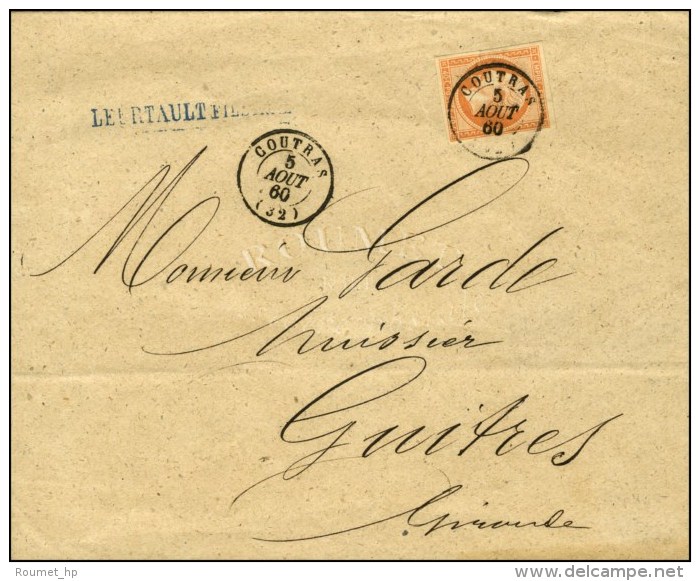 LEURTAULT
COUTRAS
5
AOUT
60
COUTRAS
5
AOUT
60
(32)
Monsieur Garde
Huissier
Guitres
Gironde
Roumet_hp
delcampe.net